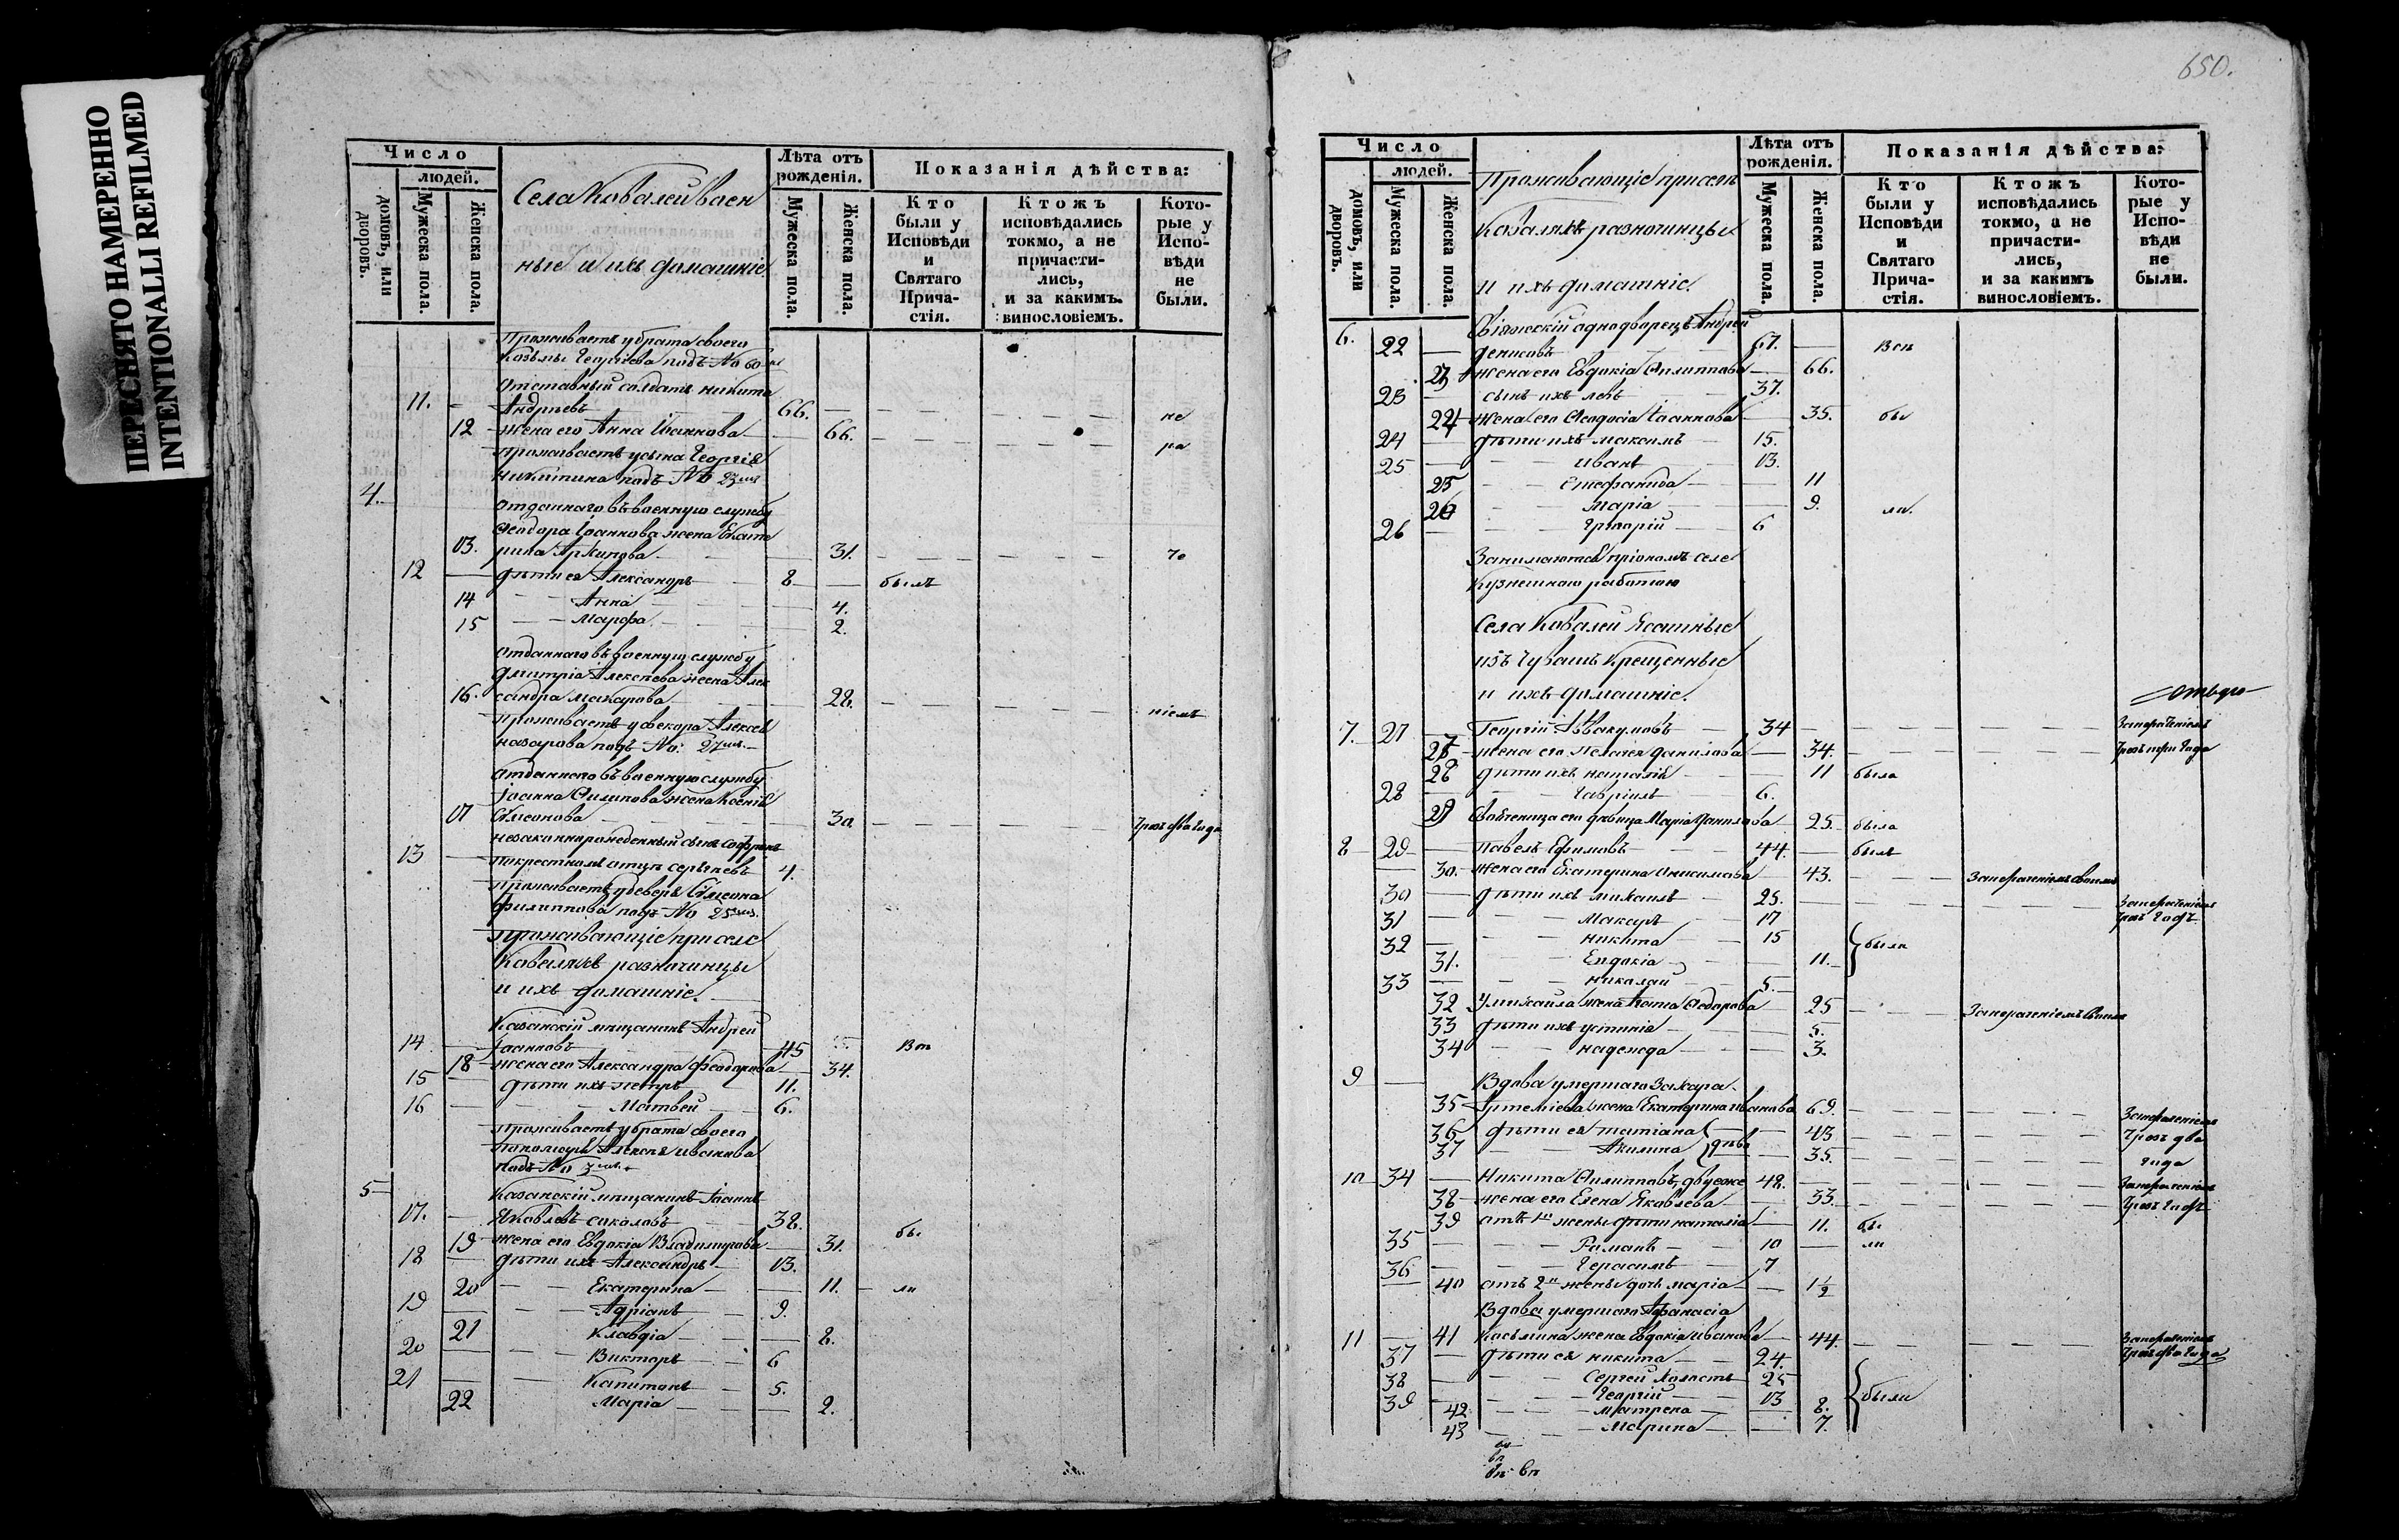 ПЕРЕСНЯТО НАМЕРЕННО
INTENTIONALLI REFILMED
Число
людей.
домовъ, или дворовъ.
Мужеска пола.
Женска пола.
Села Ковалей воен
ные и ихъ домашніе.
Лѣта отъ рожденія.
Мужеска пола.
Женска пола.
Показанія дѣйства:
Кто были у Исповѣди и Святаго Прича-стія.
Ктожъ исповѣдались токмо, а не причасти-лись, и за какимъ винословіемъ.
Кото-рые у Испо-вѣди не были.
Проживаетъ у брата своего
Козьмы Георгіева подъ No 60
Отставный солдатъ Никита
11. Андреевъ 66. не
12 жена его Анна Иоаннова 66. ра
проживаетъ у сына Георгія
Никитина подъ No 23
4. Отданнаго въ военную службу
Ѳеодора Іоаннова жена Екате
13. рина 31.
12 дѣти ея Александръ 8 былъ
14 Анна 4.
15 Марфа 2.
Отданнаго въ военную службу
Дмитрія Алексѣева жена Алек
16. сандра Макарова 28. ніемъ
проживаетъ у свекора Алексѣя
Назарова подъ No: 27
Отданнаго въ военную службу
Іоанна Филипова жена Ксенія
17 Симеонова 30 чрезъ два года
незаконнорожденный сынъ
13 по крестномъ отцѣ Сергѣевъ 4.
проживаетъ у деверя Симеона
Филиппова подъ No 25
Проживающіе при селѣ
Коваляхъ разночинцы
и ихъ домашніе.
Казанскій мѣщанинъ Андрей
14 Іоанновъ 45 Вси
18 жена его Александра Феодорова 34.
15 дѣти ихъ Петръ 11.
16 Матвей 6.
проживаетъ у брата своего
пономаря Алексѣя Иванова
подъ No 3
5 Казанскій мѣщанинъ Іоаннъ
17. Яковлевъ Соколовъ 38. бы
19 жена его Евдокія Владимирова 31.
18 дѣти ихъ Александръ 13.
20 Екатерина 11. ли
19 Адріанъ 9.
21 Клавдія 8.
20 Викторъ 6
21 Капитонъ 5.
22 Марія 2.
650.
Число
людей.
домовъ, или дворовъ.
Мужеска пола.
Женска пола.
Проживающіе при селѣ
Коваляхъ разночинцы
и ихъ домашніе.
Лѣта отъ рожденія.
Мужеска пола.
Женска пола.
Показанія дѣйства:
Кто были у Исповѣди и Святаго Прича-стія.
Ктожъ исповѣдались токмо, а не причасти-лись, и за какимъ винословіемъ.
Кото-рые у Испо-вѣди не были.
6. Свіяжскій однодворецъ Андрей
22 Денисовъ 67. Вси
23 жена его Евдокія Филиппова 66.
23 сынъ ихъ Левъ 37.
24 жена его Ѳеодосія Іоаннова 35. бы
24 дѣти ихъ Максимъ 15.
25 Иванъ 13.
25 Стефанида 11
26 Марія 9. ли.
26 Григорій 6
Занимаются при ономъ селѣ
кузнешною работою
Села Ковалей Ясашные
изъ Чувашъ Крещенные
и ихъ домашніе.
7. 27 Георгій Аввакумовъ 34 За
27 жена его Пелагея Данилова 34. чрезъ три года
28 дѣти ихъ Наталія 11 была
28 Гавріилъ 6.
29 Свояченица его дѣвица Марія Данилова 25. была
8 29 Павелъ Ефимовъ 44. былъ
30. жена его Екатерина Анисимова 43.
30 дѣти ихъ Михаилъ 25. чрезъ годъ
31 Макаръ 17
32 Никита 15 были
31. Евдокія 11.
33 Николай 5.
32 У Михайла жена Ѳедорова 25
33 дѣти ихъ Устинія 5.
34 Надежда 3.
9 Вдова умершаго Захара
35 Артеміева жена Екатерина Иванова 69.
36 дѣти ея Татіана 43 чрезъ два
37 Акилина дѣвы 35. года
10 34 Никита Филипповъ двуеже 48.
38 жена его Елена Яковлева 33. чрезъ годъ
39 отъ 1й жены дѣти Наталія 11. бы
35 Романъ 10 ли
36 Герасимъ 7
40 отъ 2й жены дочь Марія 1½
Вдова умершаго Афанасія
11 41 Косьмина жена Евдокія Иванова 44.
37 дѣти ея Никита 24. чрезъ два года
38 Сергей холостъ 25
39 Георгій 13 были
42 Матрена 8.
43 Марина 7.